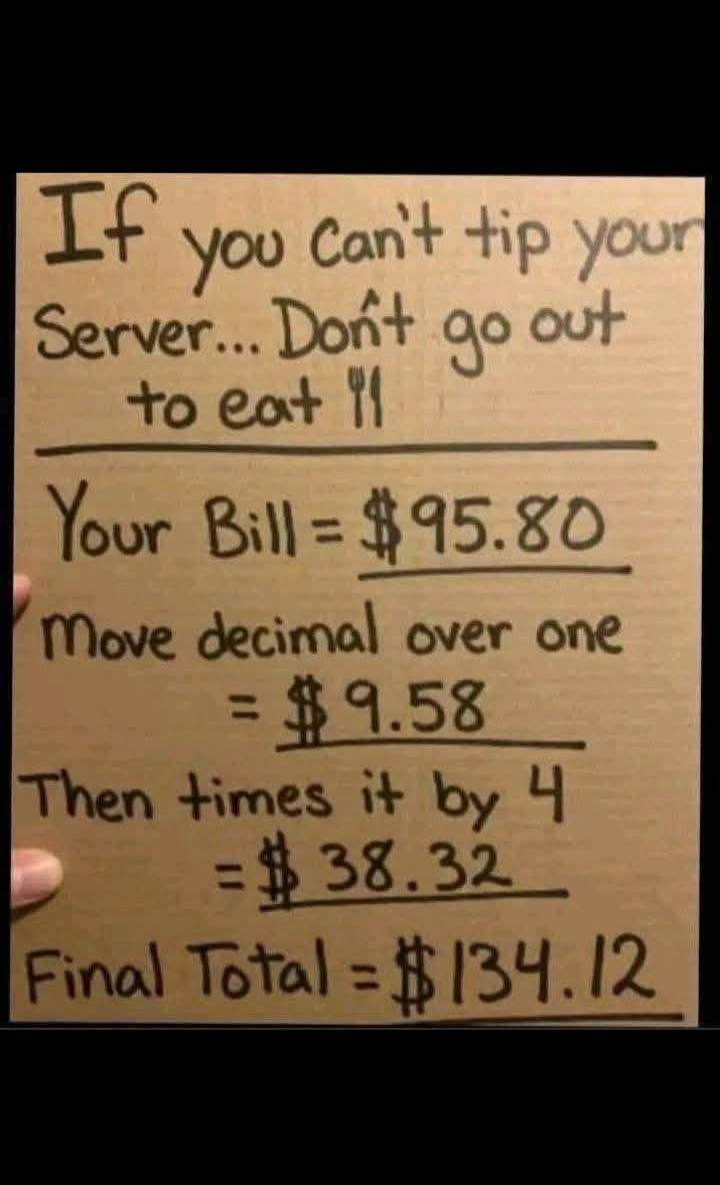 If you can't tip your
Server... Don't go out
to eat 🍴
Your Bill = $95.80
Move decimal over one
= $9.58
Then times it by 4
= $38.32
Final Total = $134.12